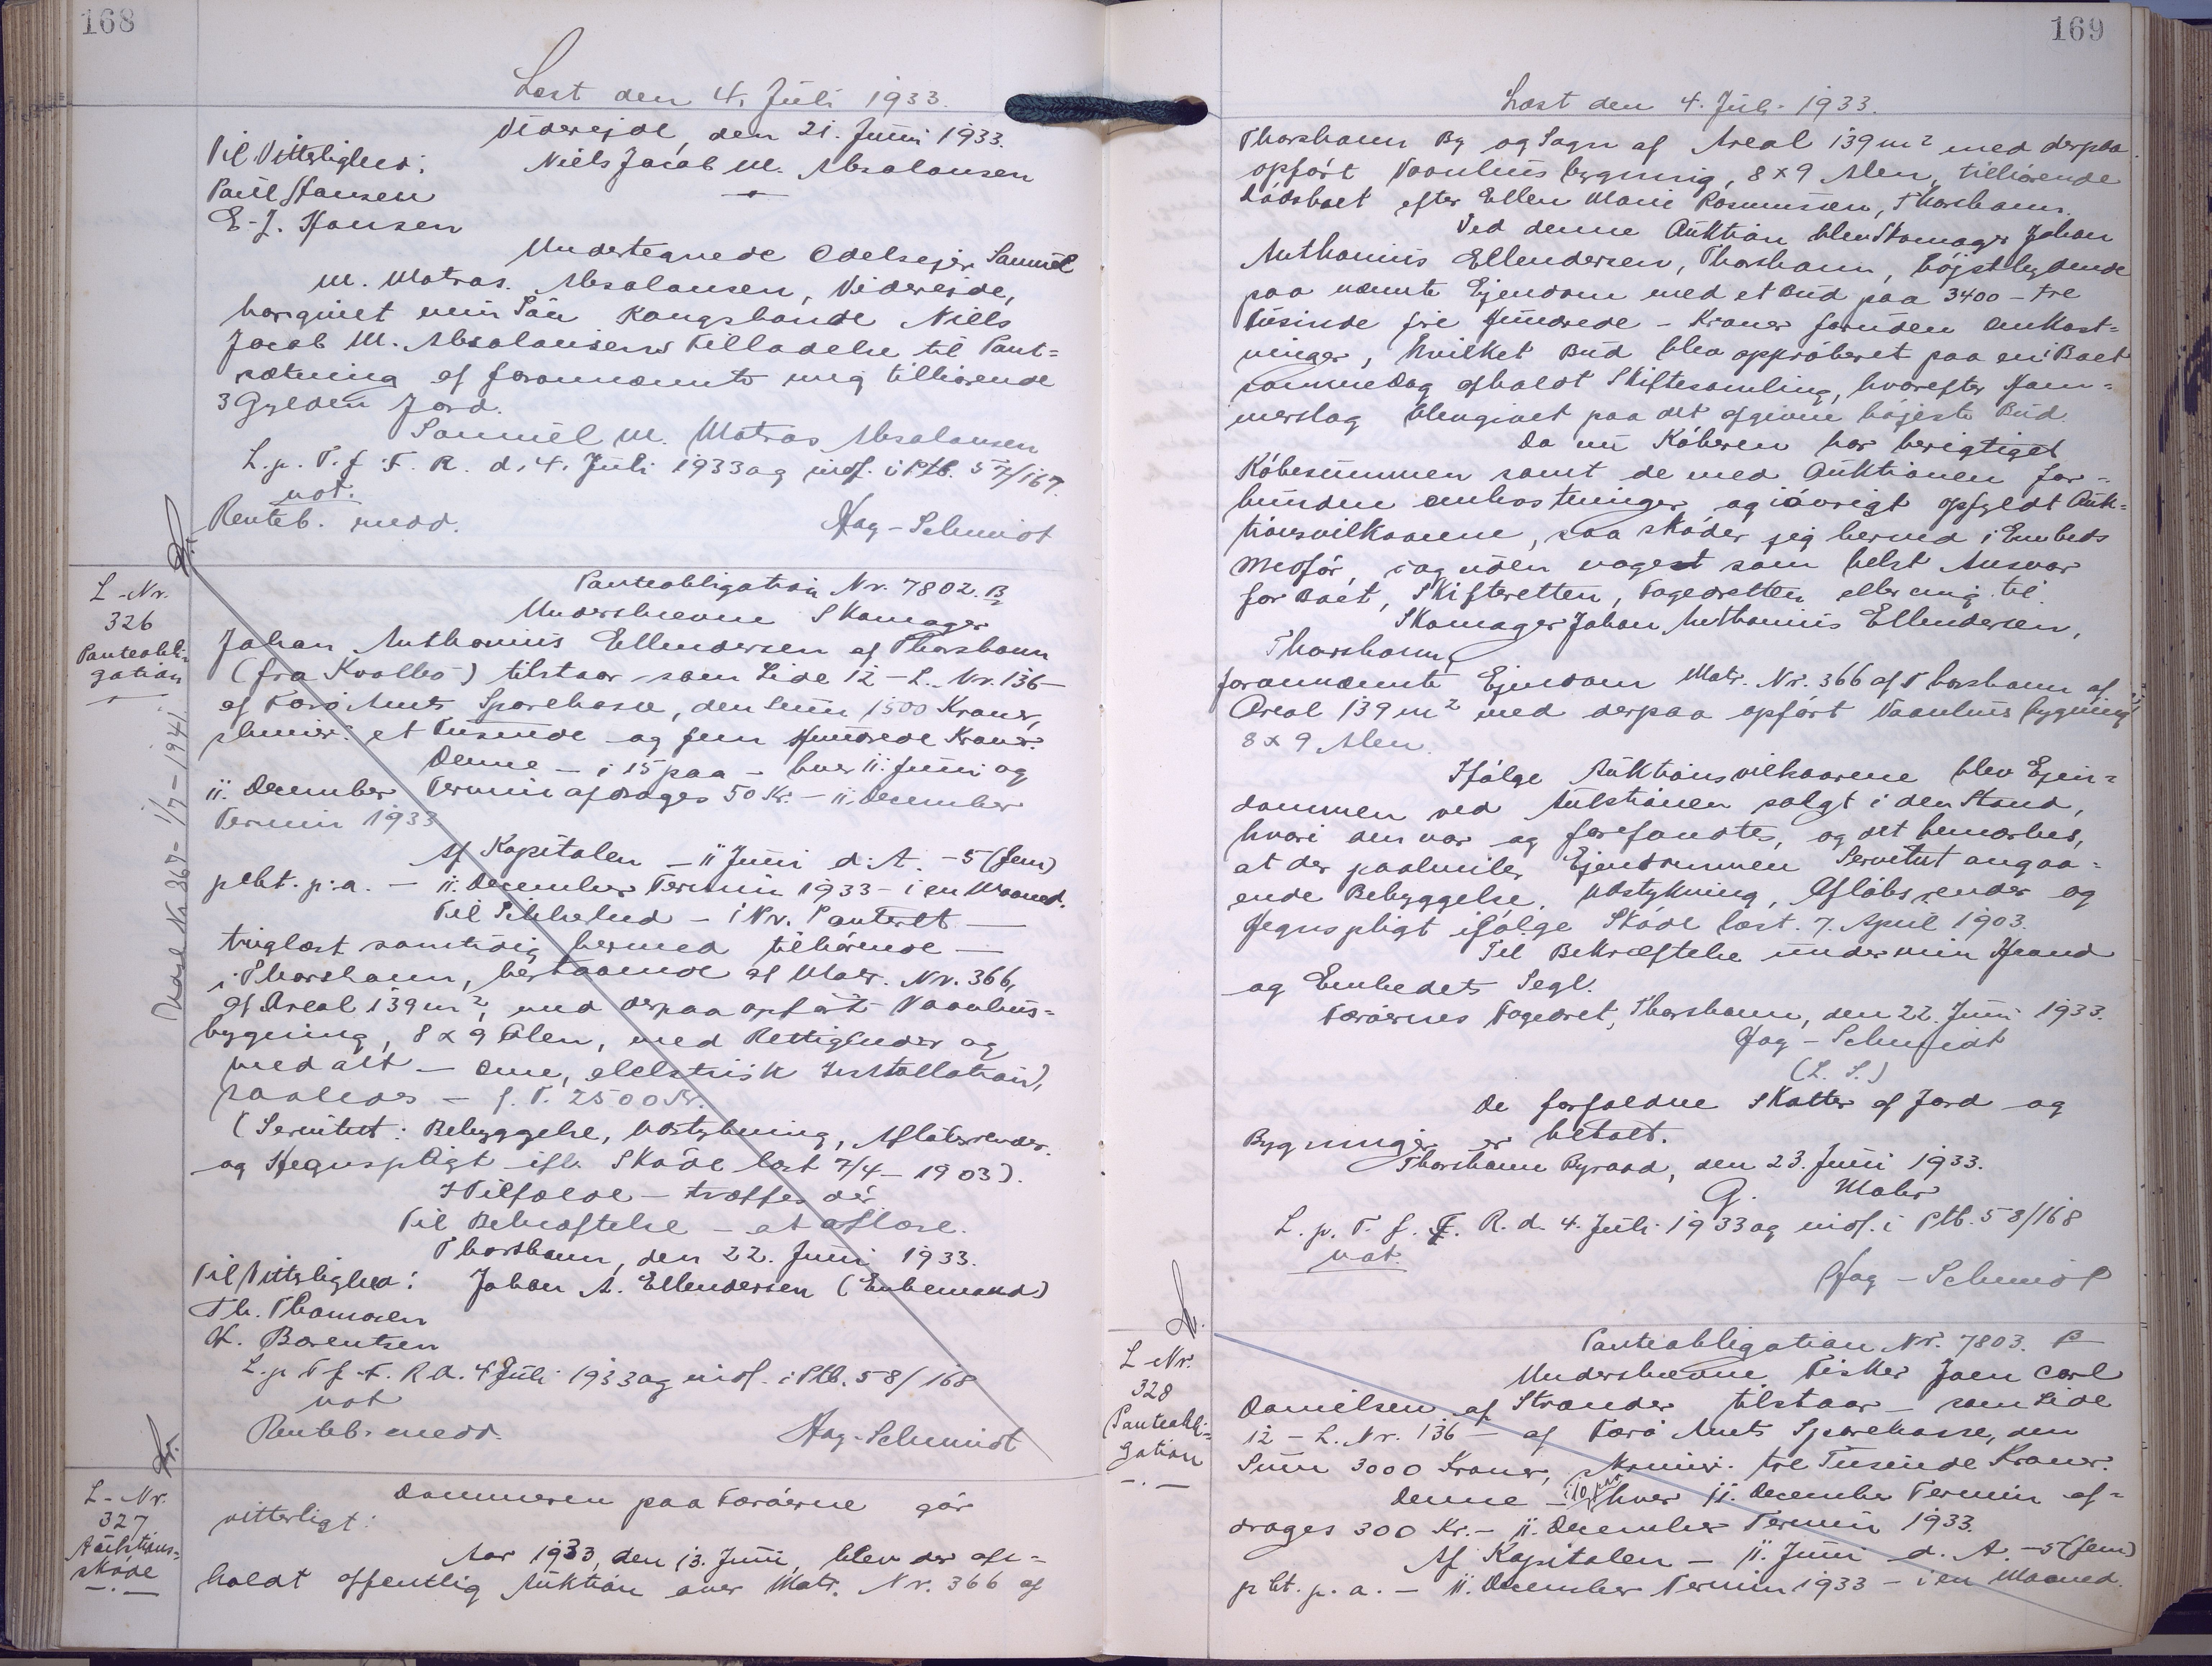 168
Læst den 4. Juli 1933.
Viderejde, den 21. Juni 1933.
Til Vitterlighed:
Niels Jacob M. Absalonsen
Paul Hansen
E. J. Hansen
Undertegnede Odelsejer Samuel
M. Matras Absalonsen, Viderejde,
har givet min Søn Kongsbonde Niels
Jacob M. Absalonsen Tilladelse til Pant=
sætning af forannævnte mig tilhørende
3 Gylden Jord.
Samuel M. Matras Absalonsen
L. p. T. f. F. R. d. 4. Juli 1933 og indf. i Ptb. 57/167.
not.
Renteb. medd.
Hag-Schmidt
L-Nr.
326
Panteobli-
gation
Udsl. Nr. 367 - 1/7 - 1941
Panteobligation Nr. 7802. B
Underskrevne Skomager
Johan Anthonius Ellendersen af Thorshavn
(fra Kvalbø) tilstaar - som Side 12 - L. Nr. 136 -
af Færø Amts Sparekasse, den Sum 1500 Kroner,
skriver: et Tusinde og fem Hundrede Kroner.
Denne - i 15 paa - hver 11. Juni og
11. December Termin afdrages 50 Kr. - 11. December
Termin 1933
Af Kapitalen - 11 Juni d. A. - 5 (fem)
pCt. p. a. - 11. December Termin 1933 - i en Maaned.
Til Sikkerhed - i Nr. Panteret -
tinglæst samtidig hermed tilhørende -
i Thorshavn, bestaaende af Matr. Nr. 366,
af Areal 139 m², med derpaa opført Vaanhus=
bygning, 8 x 9 Alen, med Rettigheder og
med alt - Ovne, elektrisk Installation,
saaledes - f. T. 2500 Kr.
(Servitut: Bebyggelse, Udstykning, Afløbsrender
og Hegnspligt ifl. Skøde læst 7/4 - 1903).
I Tilfælde - træffes der
Til Bekræftelse - at aflæse.
Thorshavn, den 22. Juni 1933.
Til Vitterlighed: Johan A. Ellendersen (Enkemand)
Th. Thomsen
K. Bærentsen
L. p. T. f. F. R. d. 4 Juli 1933 og indf. i Ptb. 58/168
not
Renteb. medd.
Hag-Schmidt
L-Nr.
327
Auktions=
skøde
Dommeren paa Færøerne gør
vitterligt:
Aar 1933, den 13. Juni, blev der af=
holdt offentlig Auktion over Matr. Nr. 366 af
169
Læst den 4. Juli 1933.
Thorshavn By og Sogn af Areal 139 m² med derpaa
opført Vaanhusbygning, 8 x 9 Alen, tilhørende
Dødsboet efter Ellen Marie Rasmussen, Thorshavn.
Ved denne Auktion blev Skomager Johan
Anthonius Ellendersen, Thorshavn, højstbydende
paa nævnte Ejendom med et Bud paa 3400 - tre
Tusinde fire Hundrede - Kroner foruden Omkost=
ninger, hvilket Bud blev approberet paa en i Boet
sammedag afholdt Skiftesamling, hvorefter Ham=
merslag blev givet paa det afgivne højeste Bud.
Da nu Køberen har berigtiget
Købesummen samt de med Auktionen for=
bundne Omkostninger og iøvrigt opfyldt Auk=
tionsvilkaarene, saa skøder jeg herved i Embeds
Medfør, og uden noget som helst Ansvar
for Boet, Skifteretten, Fogedretten eller mig til
Skomager Johan Anthonius Ellendersen,
Thorshavn,
forannævnte Ejendom Matr. Nr. 366 af Thorshavn af
Areal 139 m² med derpaa opført Vaanhusbygning
8 x 9 Alen.
Ifølge Auktionsvilkaarene blev Ejen=
dommen ved Auktionen solgt i den Stand,
hvori den var og forefandtes, og det bemærkes,
at der paahviler Ejendommen Servitut angaa=
ende Bebyggelse, Udstykning, Afløbsrender og
Hegnspligt ifølge Skøde læst 7. April 1903.
Til Bekræftelse under min Haand
og Embedets Segl.
Færøernes Fogedret, Thorshavn, den 22. Juni 1933.
Hag-Schmidt
(L. S.)
De forfaldne Skatter af Jord og
Bygninger er betalt.
Thorshavn Byraad, den 23. Juni 1933.
G. Mohr
L. p. T. f. F. R. d. 4. Juli 1933 og indf. i Ptb. 58/168
not.
Hag-Schmidt
L-Nr.
328
Panteobli=
gation
Panteobligation Nr. 7803. B
Underskrevne Fisker Joen Carl
Danielsen af Strænder tilstaar - som Side
12 - L. Nr. 136 - af Færø Amts Sparekasse, den
Sum 3000 Kroner, skriver: tre Tusinde Kroner.
Denne - i 10 paa hver 11. December Termin af=
drages 300 Kr. - 11. December Termin 1933.
Af Kapitalen - 11. Juni d. A. - 5 (fem)
pCt. p. a. - 11. December Termin 1933 - i en Maaned.